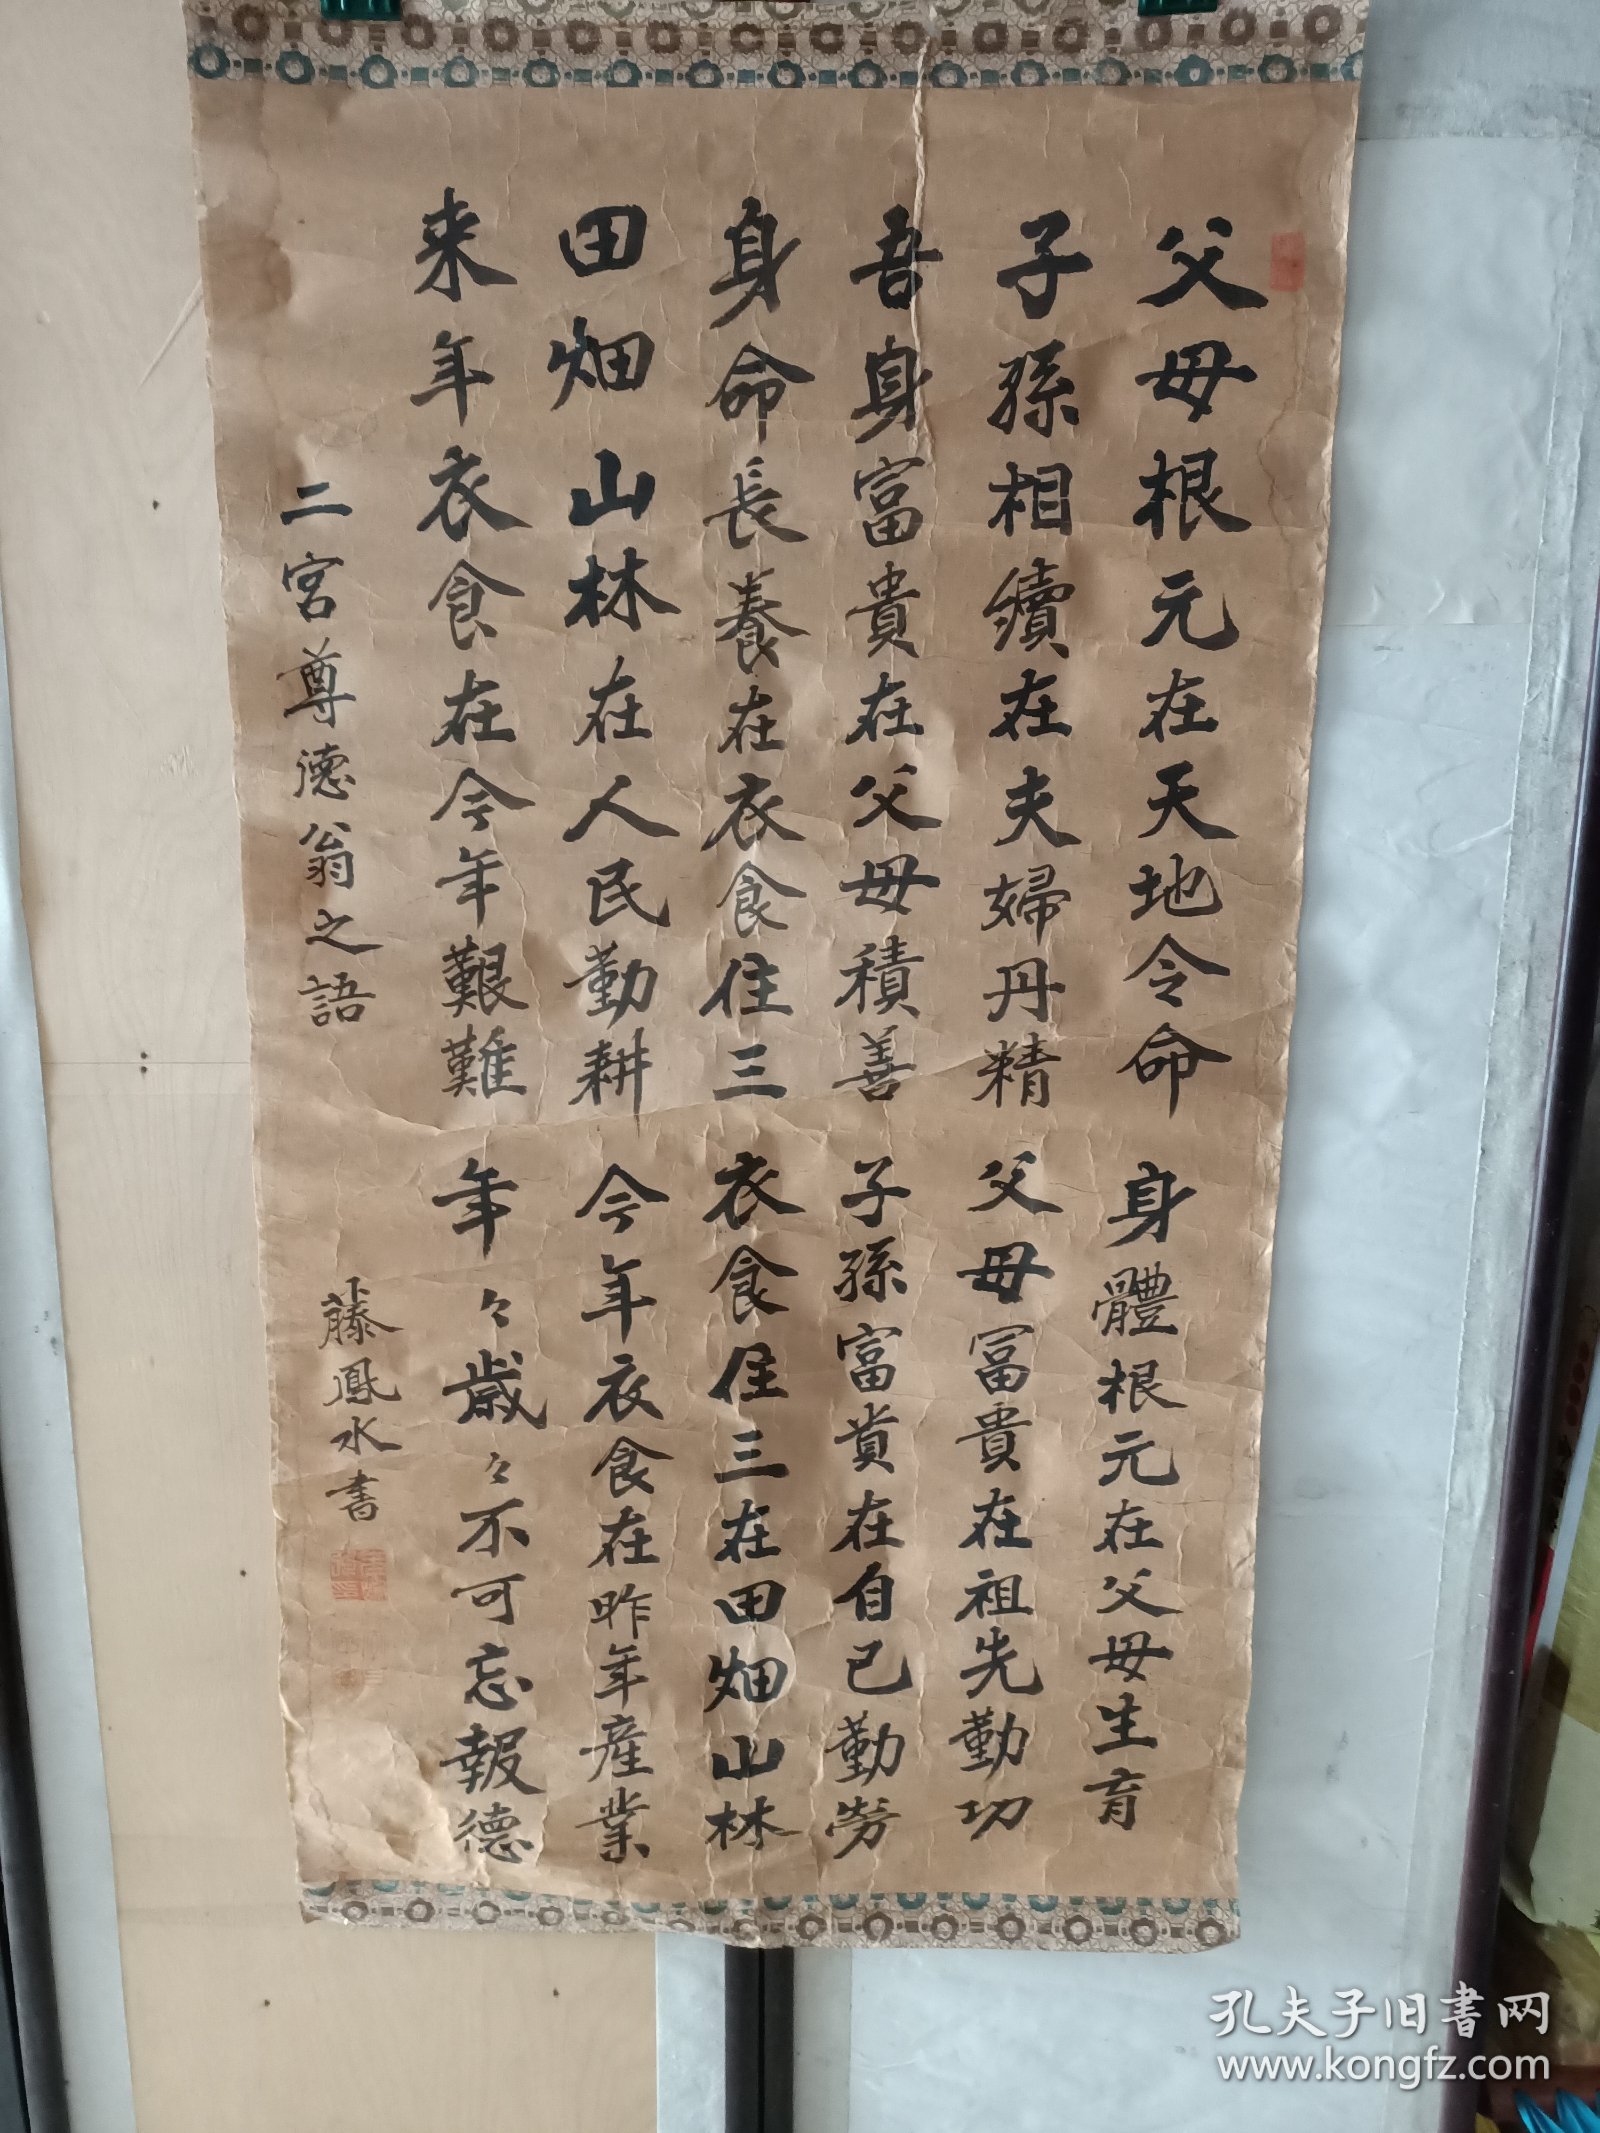 父母根元在天地令命 身體根元在父母生育
子孫相續在夫婦丹精 父母富貴在祖先勤功
吾身富貴在父母積善 子孫富貴在自己勤勞
身命長養在衣食住三 衣食住三在田畑山林
田畑山林在人民勤耕 今年衣食在昨年産業
来年衣食在今年艱難 年々歳々不可忘報德
二宮尊德翁之語
藤鳳水書
孔夫子旧书网
www.kongfz.com